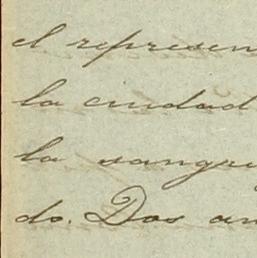 el represen
la ciudad
la sangri
do. Dos an